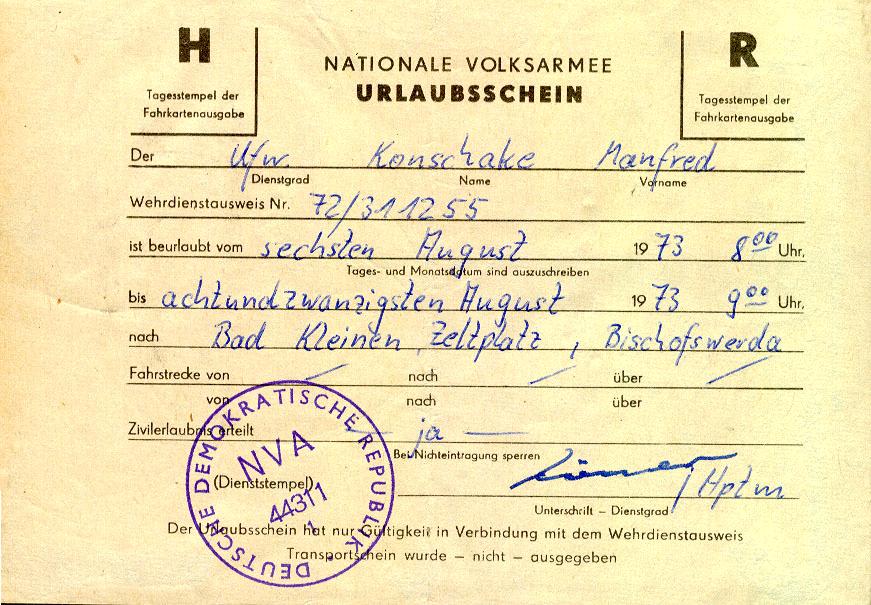 H
Tagesstempel der
Fahrkartenausgabe
NATIONALE VOLKSARMEE
URLAUBSSCHEIN
R
Tagesstempel der
Fahrkartenausgabe
Der Ufw. Konschake Manfred
Dienstgrad Name Vorname
Wehrdienstausweis Nr. 72/311255
ist beurlaubt vom sechsten August 1973 8⁰⁰ Uhr,
Tages- und Monatsdatum sind auszuschreiben
bis achtundzwanzigsten August 1973 9⁰⁰ Uhr,
nach Bad Kleinen, Zeltplatz, Bischofswerda
Fahrstrecke von — nach — über —
von nach über
Zivilerlaubnis erteilt — ja —
Bei Nichteintragung sperren
(Dienststempel)
Hptm
Unterschrift – Dienstgrad
DEUTSCHE DEMOKRATISCHE REPUBLIK
NVA
44311
1
Der Urlaubsschein hat nur Gültigkeit in Verbindung mit dem Wehrdienstausweis
Transportschein wurde – nicht – ausgegeben